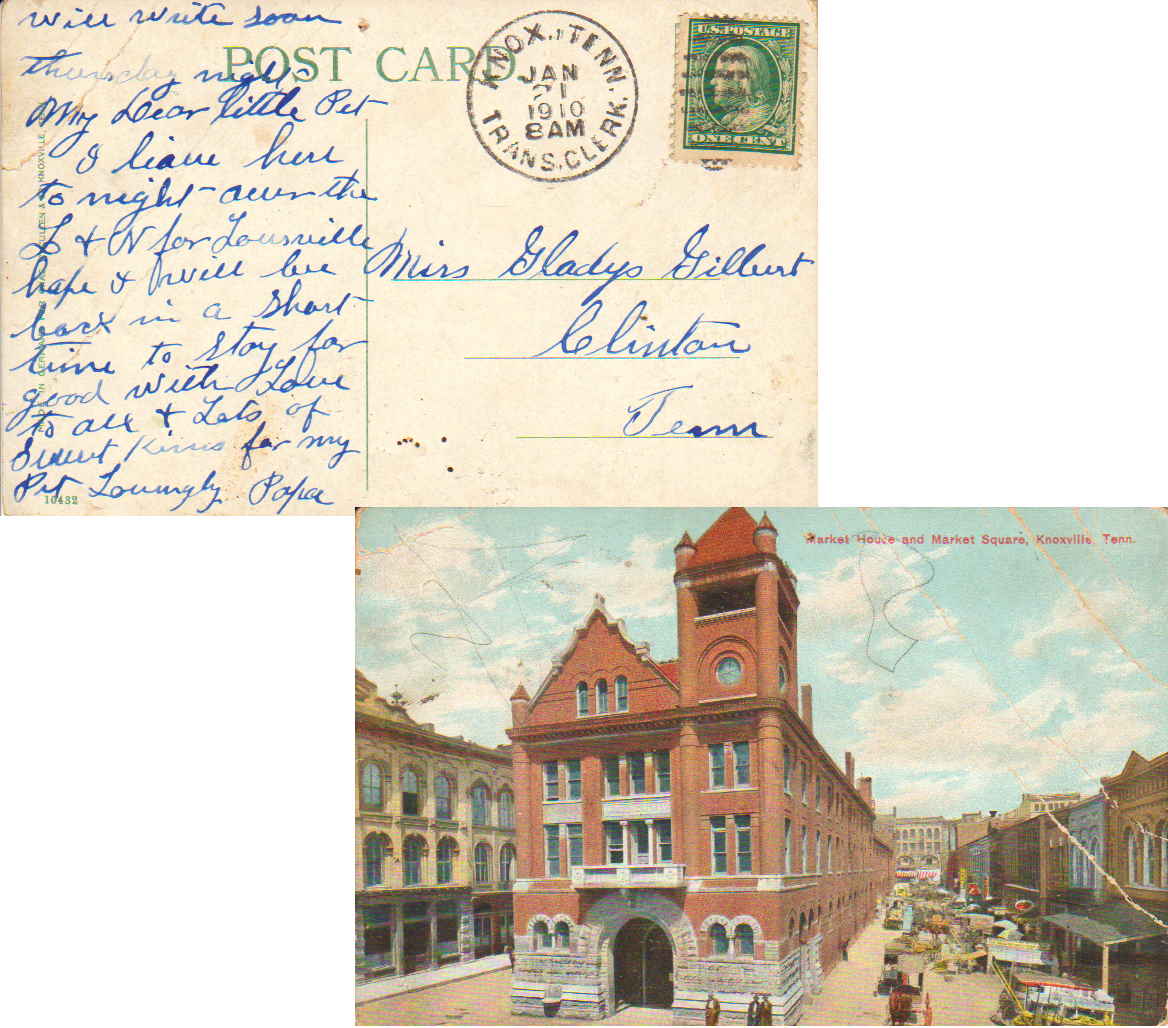 will write soon
POST CARD
Thursday night
My Dear little Pet
I leave here
to night over the
L & N for Lousville
hope I will be
back in a short
time to stay for
good with Love
to all & Lots of
Sweet Kisses for my
Pet Lovingly Papa
10432
KNOXVILLE,
KNOX., TENN.
JAN
21
1910
8AM
TRANS. CLERK.
U.S. POSTAGE
ONE CENT
Miss Gladys Gilbert
Clinton
Tenn
Market House and Market Square, Knoxville, Tenn.